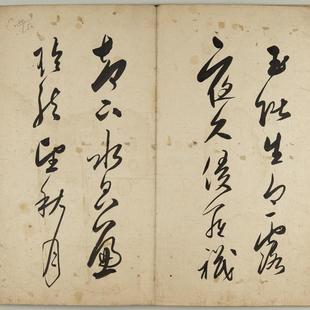 玉階生白露
夜久侵羅襪
却下水晶簾
玲瓏望秋月